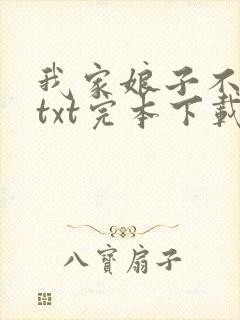 我家娘子不
txt完本下載
八寶扇子